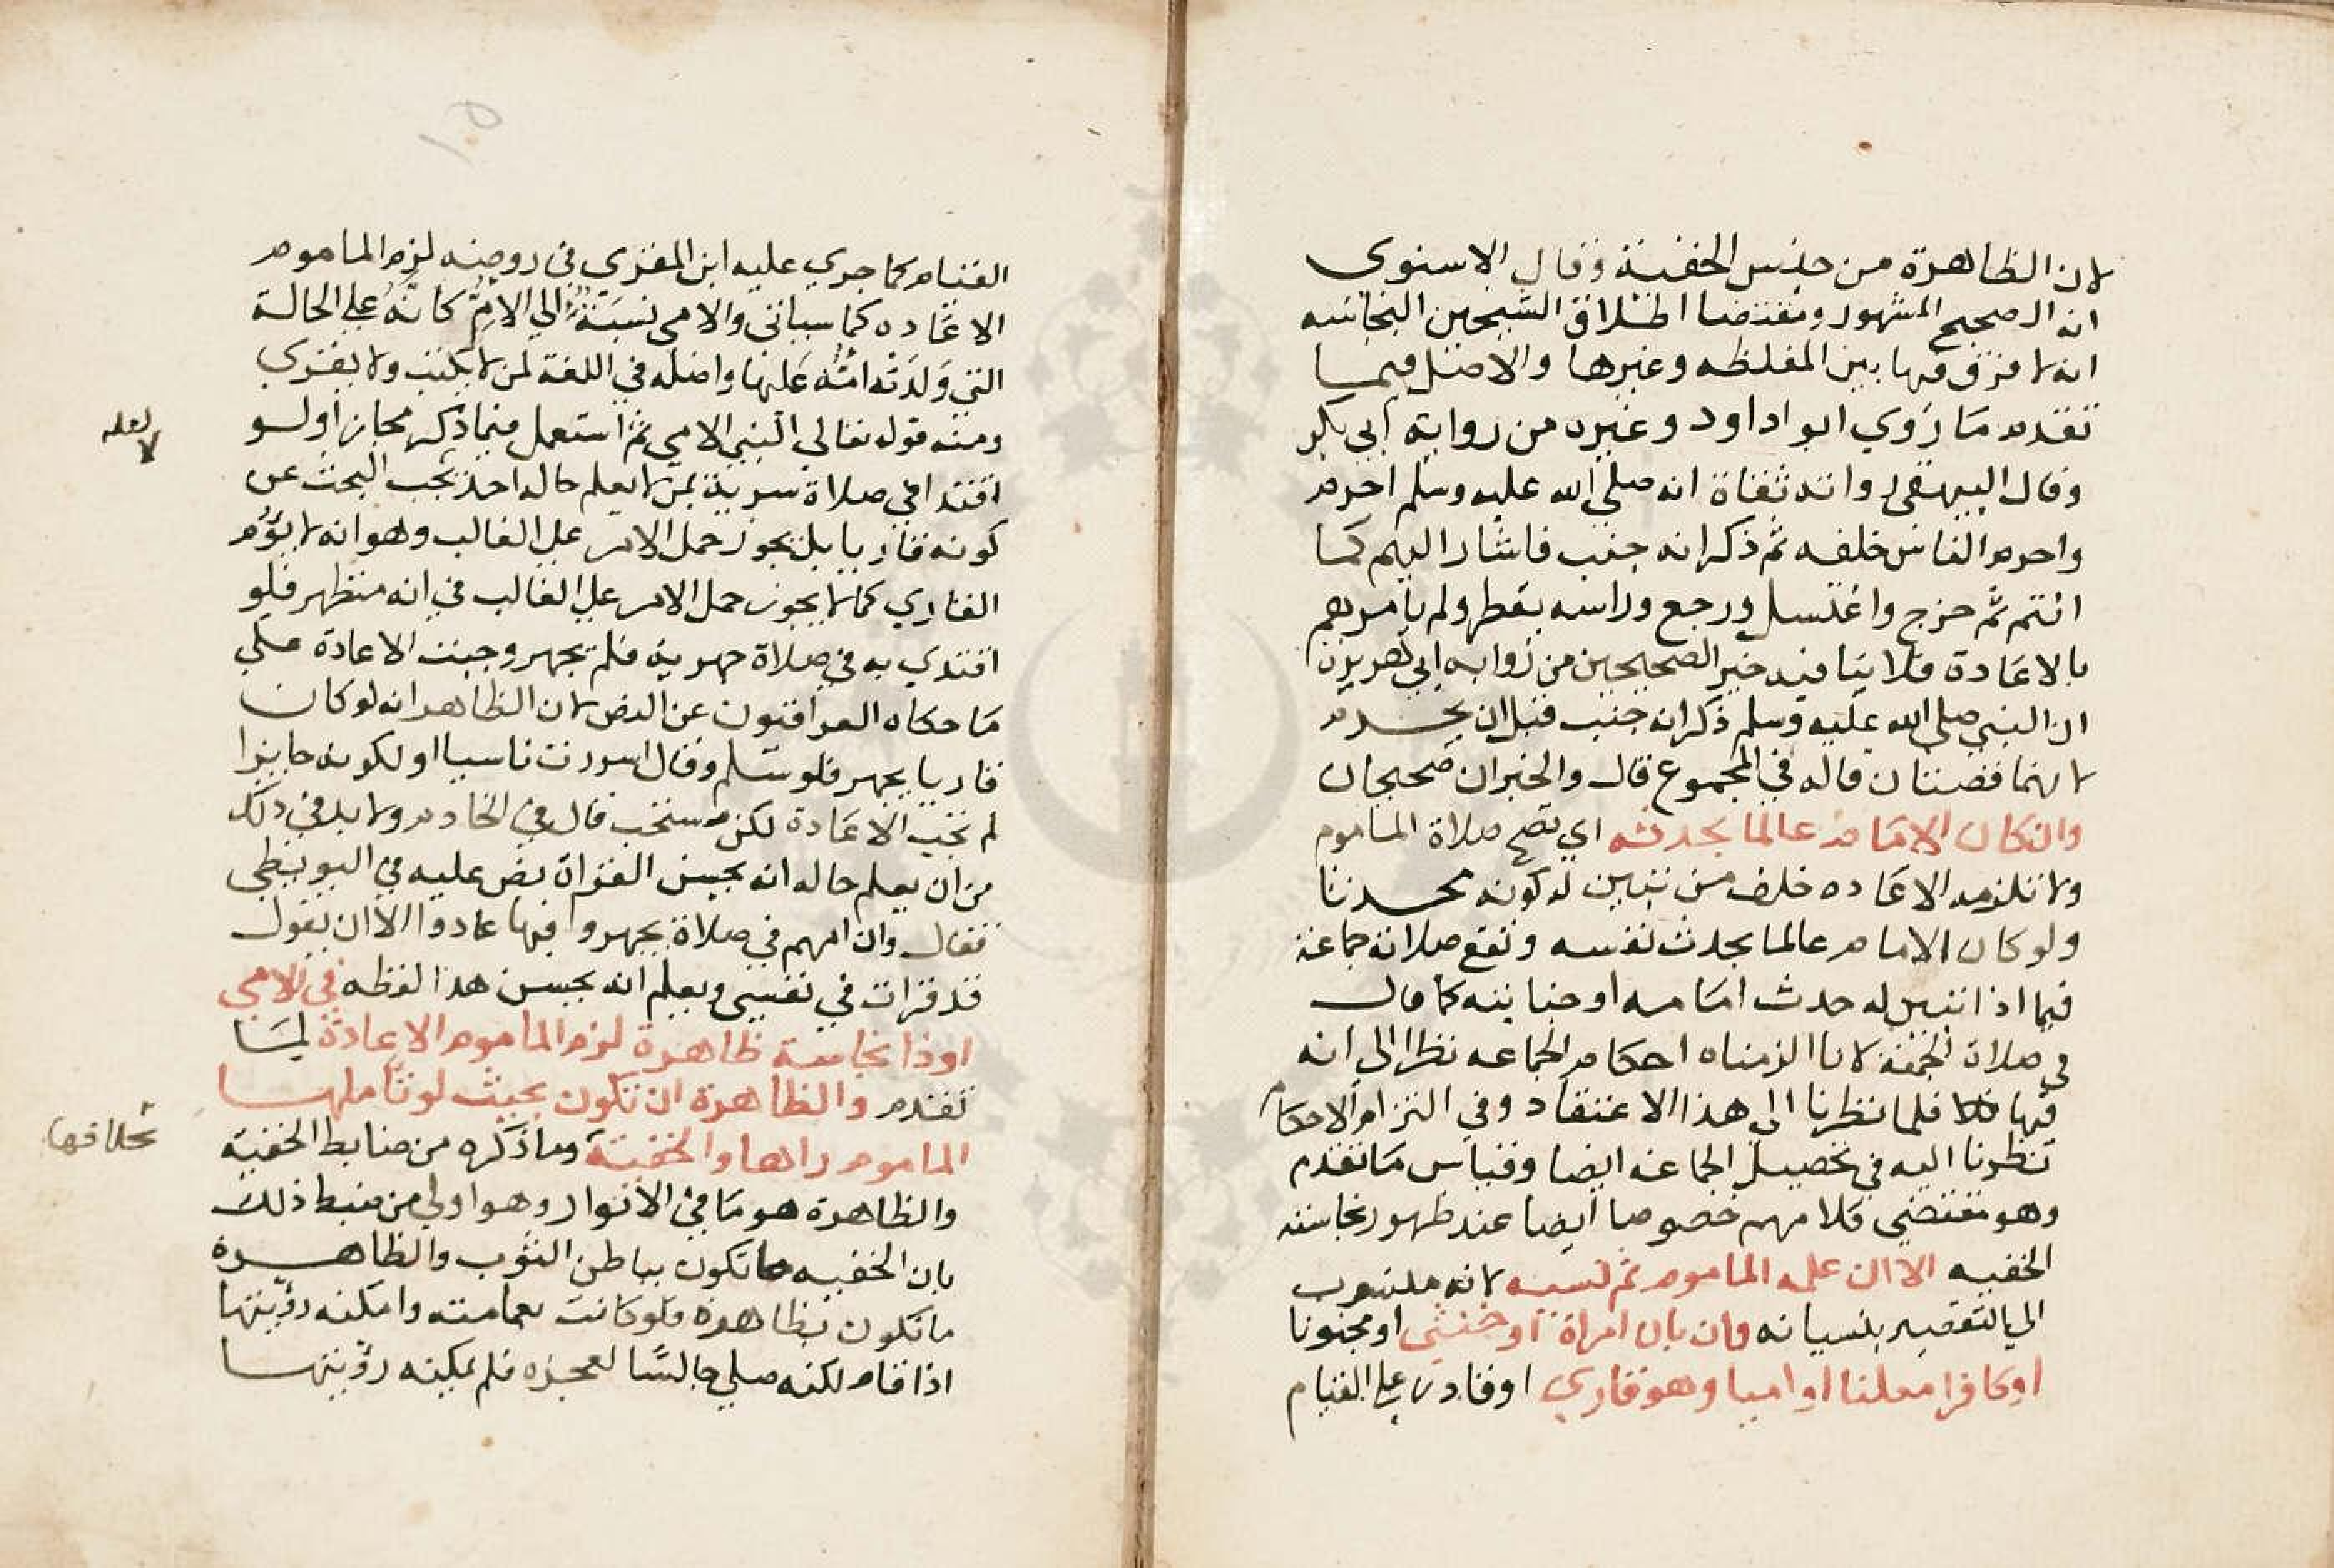 لان الظاهرة من جنس الخفية وقال الاسنوي
انه الصحيح المشهور ومقتضا اطلاق الشيخين النجاسه
انه لا فرق فيها بين المغلظه وغيرها والاصل فيما
تقدم ما روي ابو اداود وغيره من رواية ابي بكر
وقال البيهقي رواته ثقاة انه صلي الله عليه وسلم احرم
واحرم الناس خلفه ثم ذكر انه جنب فاشار اليهم كما
انتم ثم خرج واغتسل ورجع وراسه يقطر ولم يامرهم
بالاعادة فلا ينافيه خبر الصحيحين من رواية ابي هريرة
ان النبي صلي الله عليه وسلم ذكر انه جنب قبل ان يحرم
لانهما قضيتان قاله في المجموع قال والخبران صحيحان
وان كان الامام عالما بحدثه اي تصح صلاة الماموم
ولا تلزمه الاعاده خلف من تبين له كونه محدثا
ولو كان الامام عالما بحدث نفسه وتقع صلاته جماعة
فيما اذا تبين له حدث امامه او جنابته كما قال
في صلاة الجمعة لانا الزمناه احكام الجماعه نظرا الي انه
فيها فلما نظرنا الي هذا الاعتقاد وفي التزام الاحكام
نظرنا اليه في تحصيل الجماعة ايضا وقياس ما تقدم
وهو مقتضي كلامهم خصوصا ايضا عند ظهور نجاسته
الخفيه الا ان علمه الماموم ثم نسيه لانه منسوب
الي التقصير بنسيانه وان بان امراة او خنثي او مجنونا
او كافرا معلنا او اميا وهو قاري او قادر علي القيام
القيام كما جري عليه ابن المقري في روضه لزم الماموم
الاعاده كما سياتي والامي نسبة الي الام كانه علي الحالة
التي ولدته امه عليها واصله في اللغة لمن لا يكتب ولا يقري
ومنه قوله تعالي النبي الامي ثم استعمل فيما ذكر مجازا ولو
اقتدا في صلاة سرية بمن لا يعلم حاله احد يجب البحث عن
كونه قاريا بل يجوز حمل الامر علي الغالب وهو انه لا يؤم
القاري كما لا يجوز حمل الامر علي الغالب في انه متطهر فلو
اقتدي به في صلاة جهرية فلم يجهر وجبت الاعادة علي
ما حكاه العراقيون عن النص لان الظاهر انه لو كان
قاريا يجهر فلو سلم وقال اسررت ناسيا او لكونه جايزا
لم تجب الاعادة لكن مستحب قال في الخادم ولا بد في ذلك
من ان يعلم حاله انه يحسن القراة نص عليه في البويطي
فقال وان امهم في صلاة يجهروا فيها عادوا الا ان يقول
قد قرات في نفسي ويعلم انه يحسن هذا لفظه في الامي
او ذا نجاسة ظاهرة لزم الماموم الاعادة لما
تقدم والظاهرة ان تكون بحيث لو تاملها
الماموم راها والخفية وما ذكره من ضابط الخفية
والظاهرة هو ما في الانوار وهو اولي من ضبط ذلك
بان الخفيه ما تكون بباطن الثوب والظاهرة
ما تكون بظاهره فلو كانت بعمامته وامكنه رؤيتها
اذا قام لكنه صلي جالسا لعجزه فلم يمكنه رؤيتها
لعله
لا
بخلافها